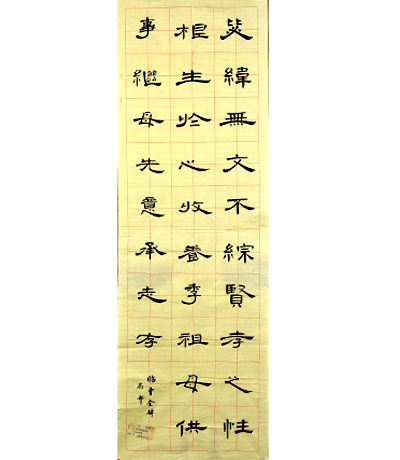 毖緯無文不綜賢孝之性
根生於心收養季祖母供
事繼母先意承志存
臨曹全碑